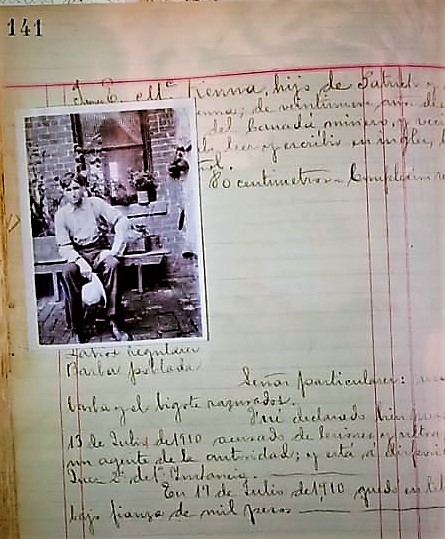 141
James C. Mc Kenna, hijo de Patrick y
enna; de veintinueve años de
del Canadá minero, y veci
leer y escribir en inglés,
ñol.
80 centimetros Complexión
Labios regulares
Barba poblada
Señas particulares:
barba y el bigote rasurados.
Fué declarado bien preso
13 de Julio de 1910 acusado de lesiones y ultra
un agente de la autoridad; y está a disposici
Juez 2º de 1ª Instancia.
En 17 de Julio de 1910 quedó en lib
bajo fianza de mil pesos